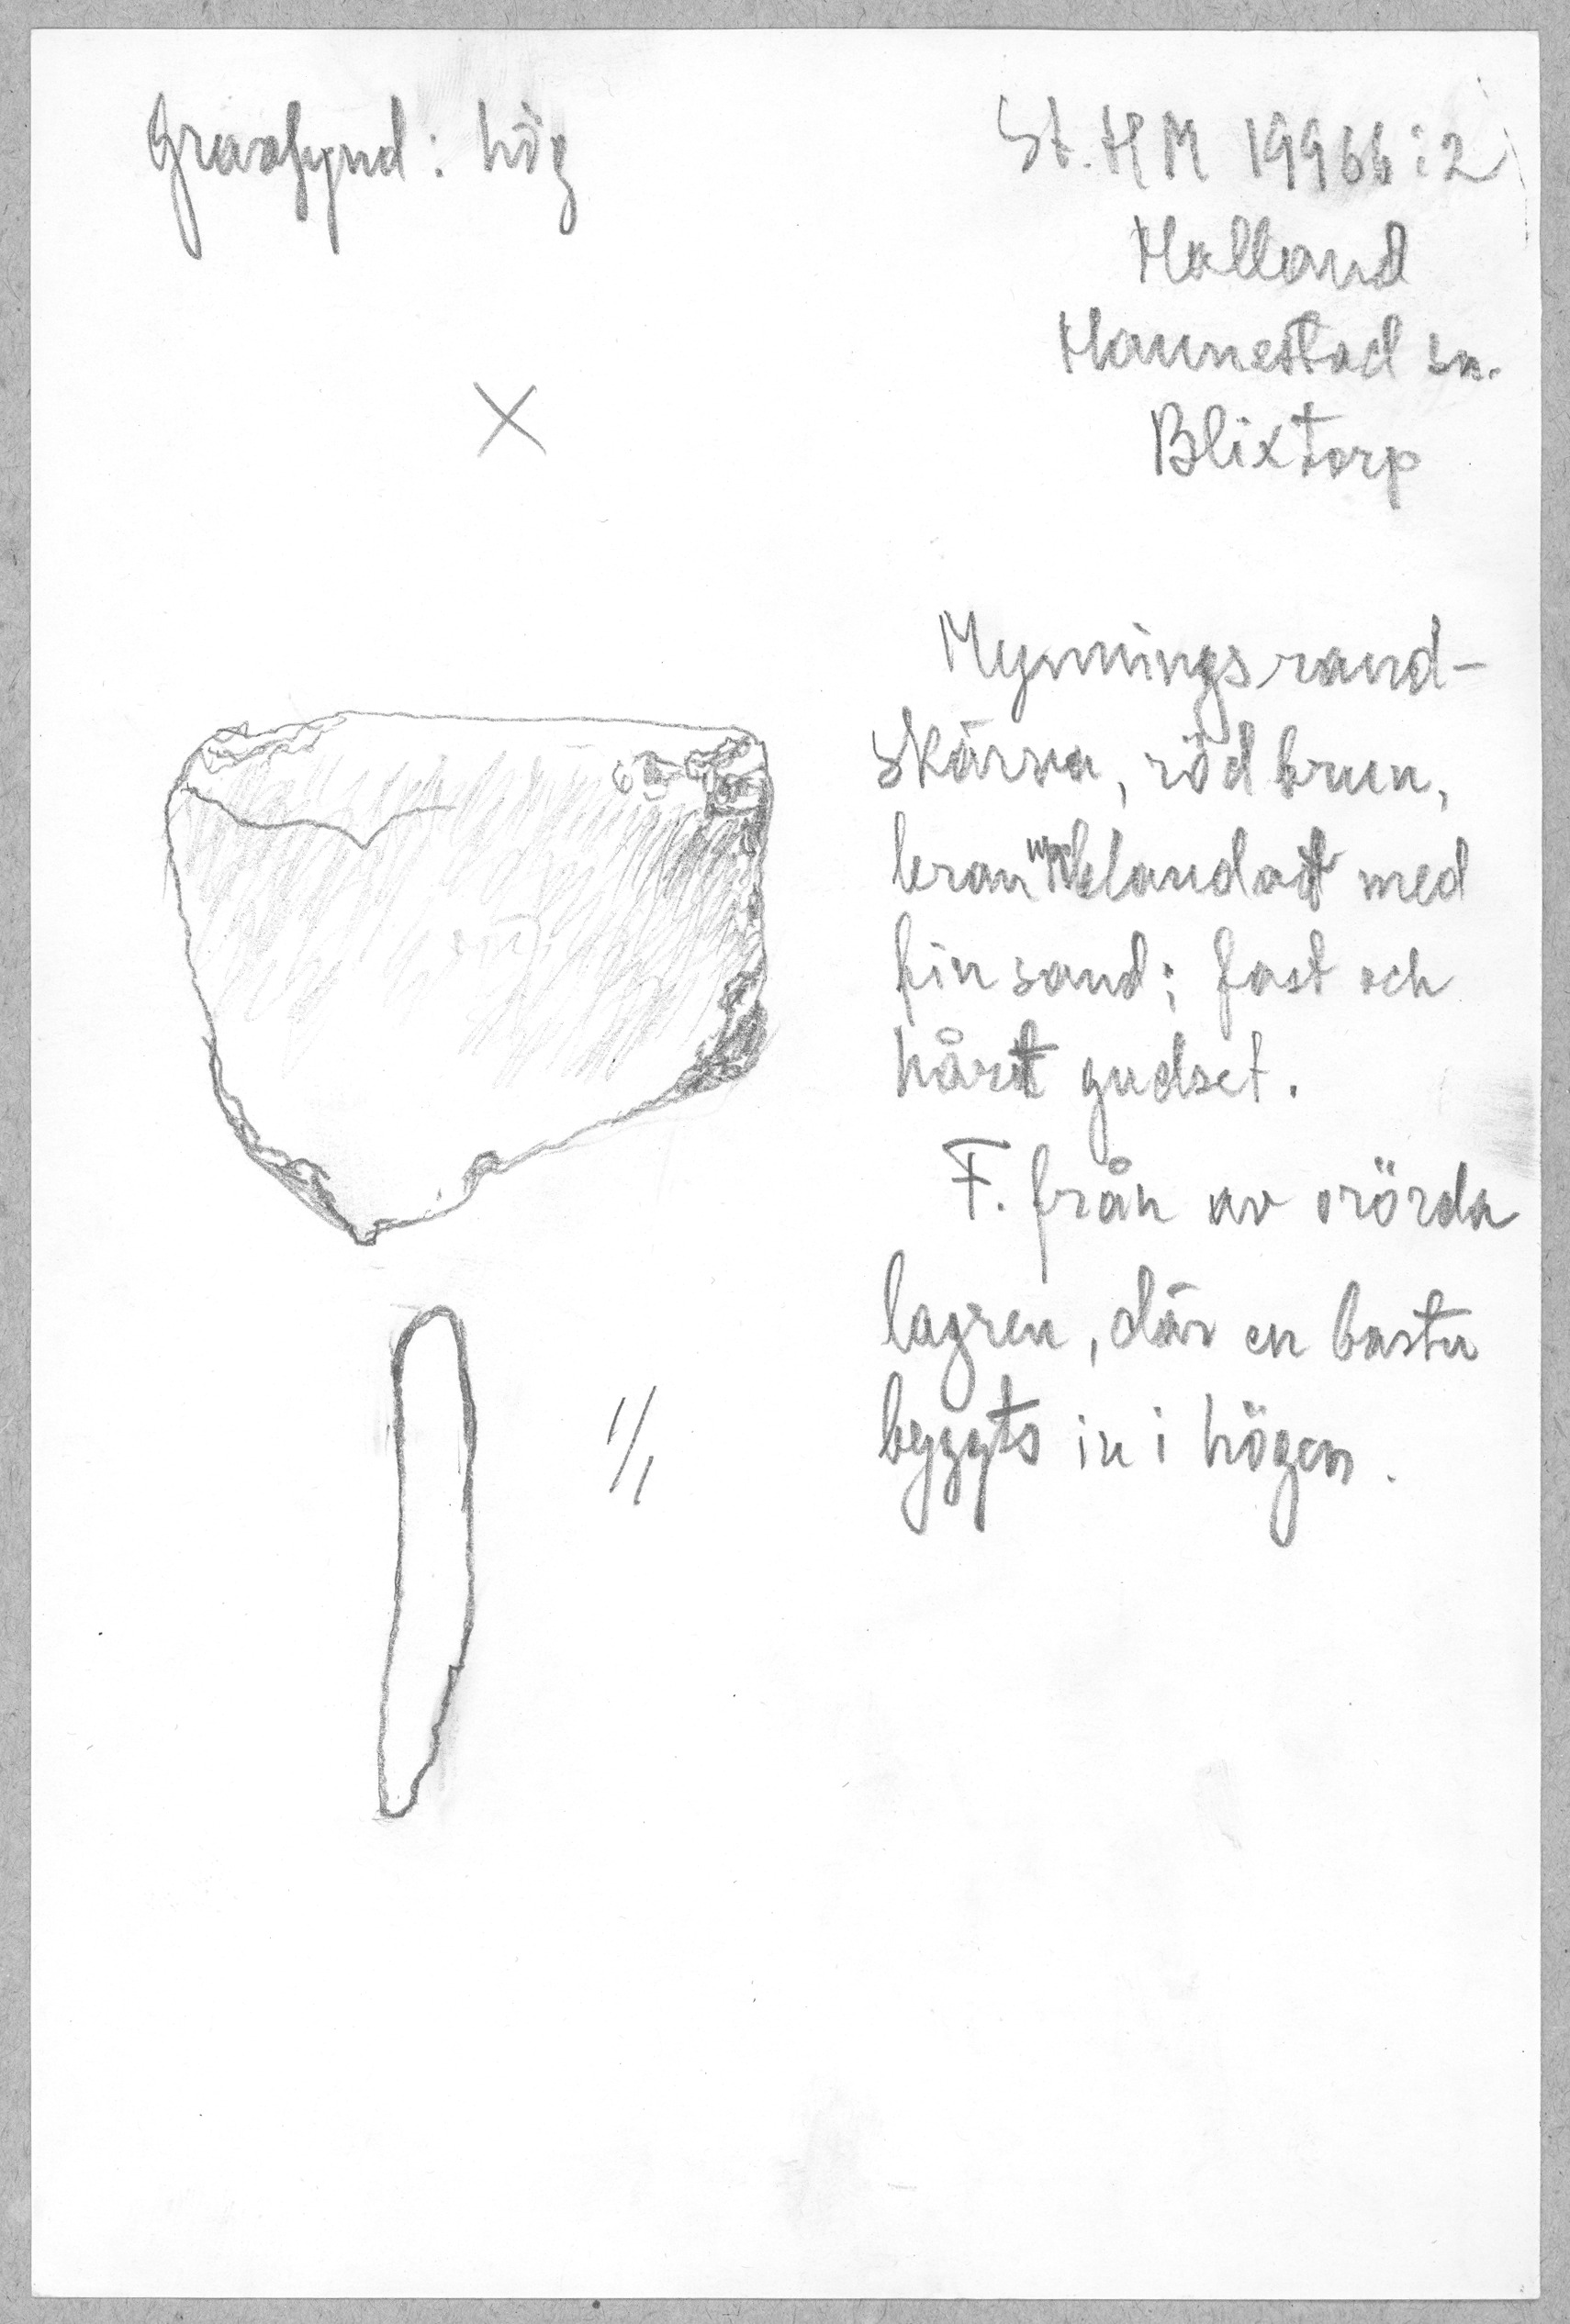 Gravfynd: hög
St. HM 19966:2
Halland
Hannestad sn.
Blixtorp
Mynningsrand-
skärva, rödbrun,
med
fin sand; fast och
hårt godset.
F. från av orörda
lagren, där en bastu
byggts in i högen.
1/1